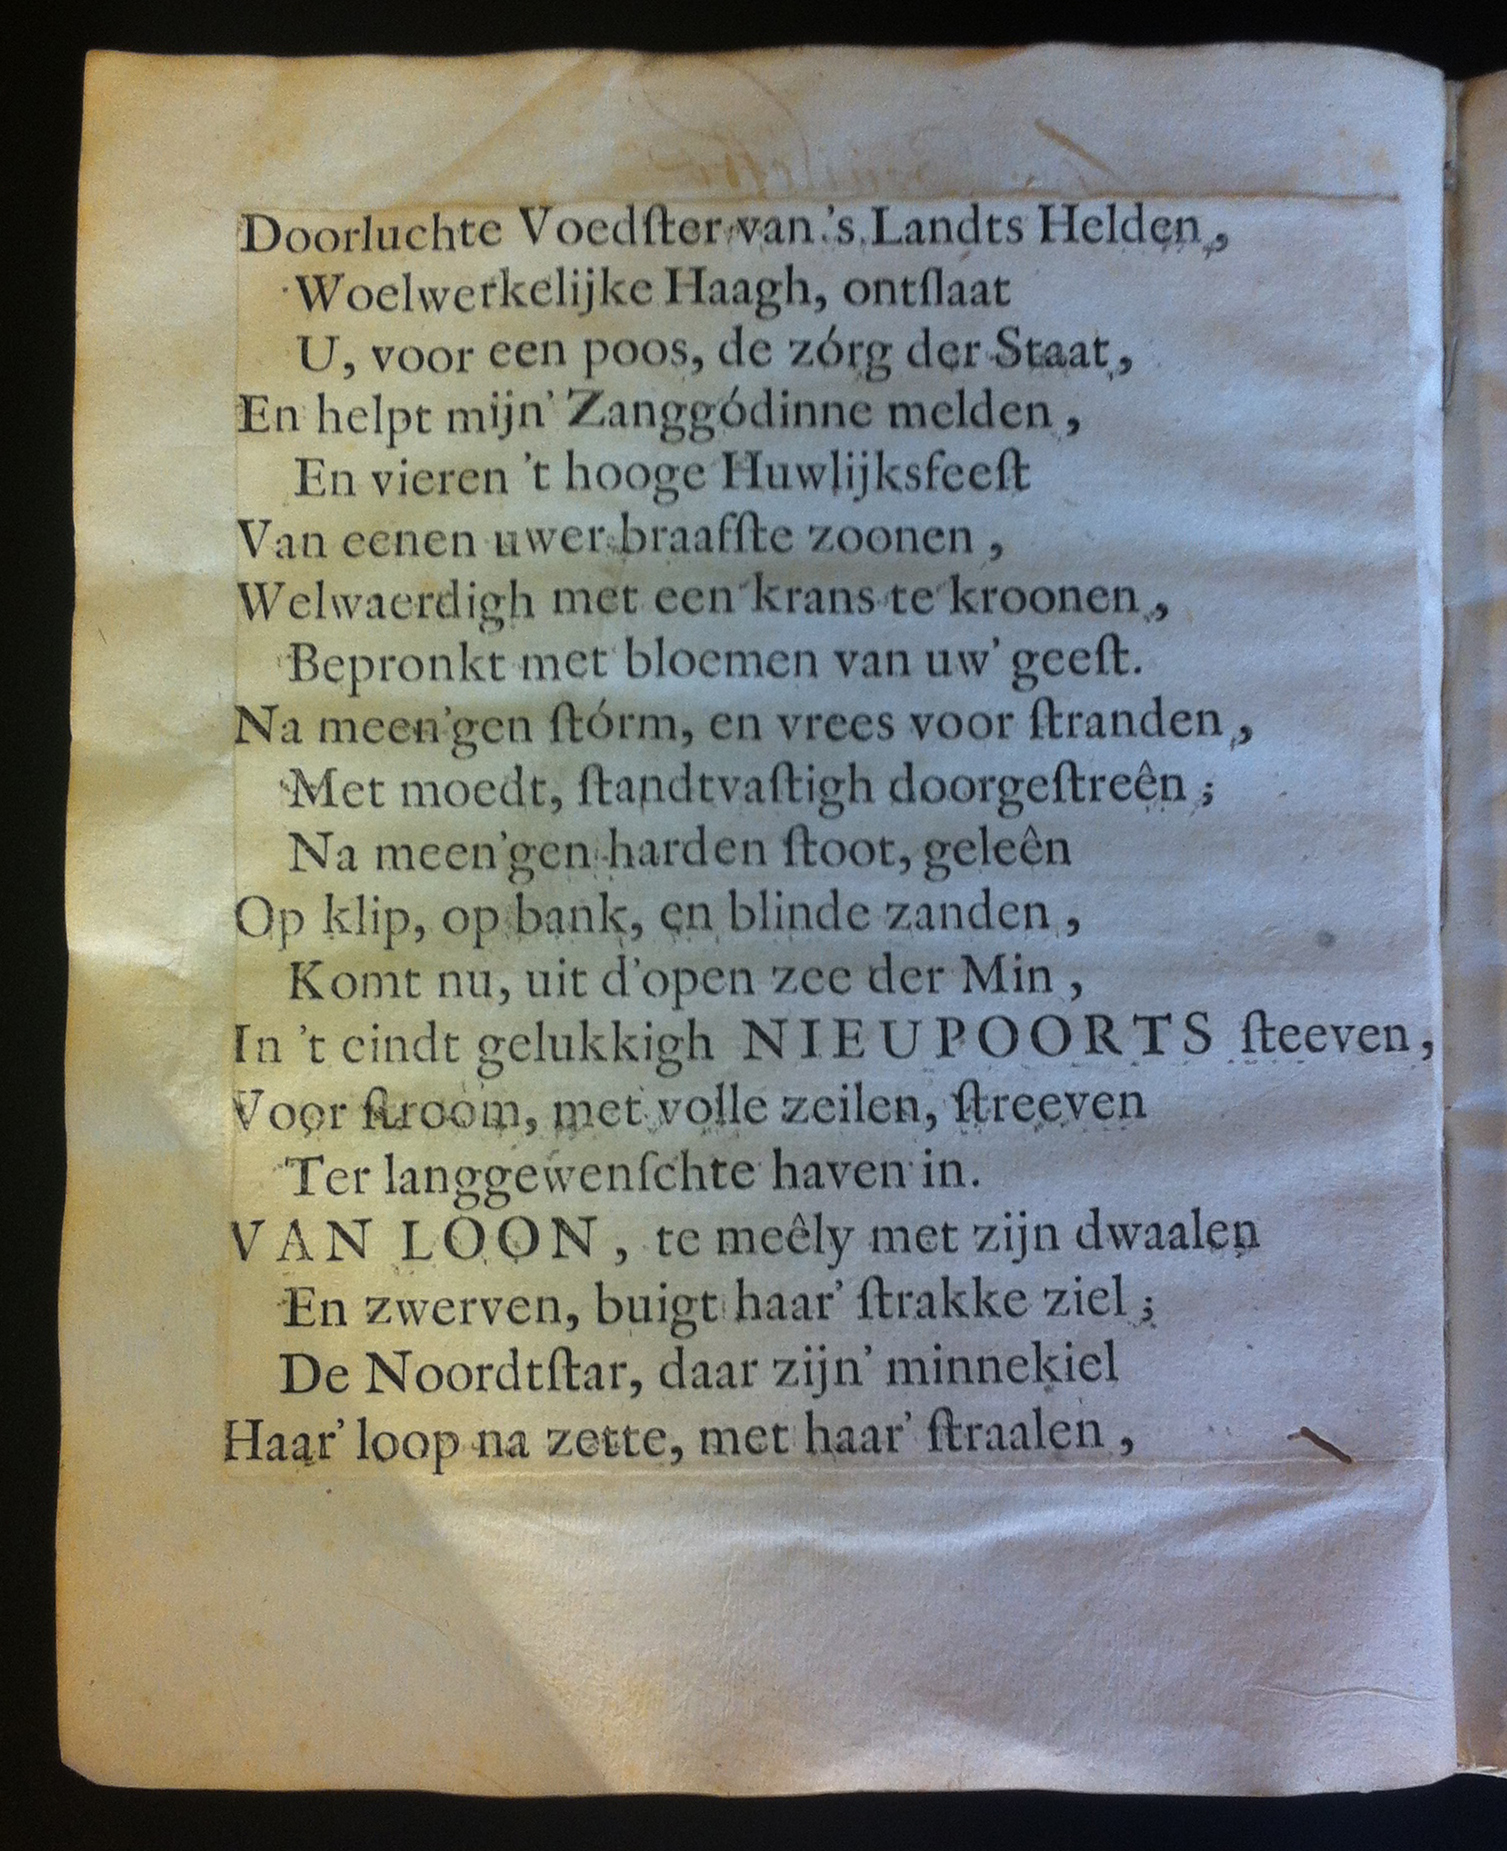 Doorluchte Voedſter van 's Landts Helden,
Woelwerkelijke Haagh, ontſlaat
U, voor een poos, de zórg der Staat,
En helpt mijn' Zanggódinne melden,
En vieren 't hooge Huwlijksfeeſt
Van eenen uwer braafſte zoonen,
Welwaerdigh met een krans te kroonen,
Bepronkt met bloemen van uw' geeſt.
Na meen'gen ſtórm, en vrees voor ſtranden,
Met moedt, ſtandtvaſtigh doorgeſtreên;
Na meen'gen harden ſtoot, geleên
Op klip, op bank, en blinde zanden,
Komt nu, uit d'open zee der Min,
In 't eindt gelukkigh NIEUPOORTS ſteeven,
Voor ſtroom, met volle zeilen, ſtreeven
Ter langgewenſchte haven in.
VAN LOON, te meêly met zijn dwaalen
En zwerven, buigt haar' ſtrakke ziel;
De Noordtſtar, daar zijn' minnekiel
Haar' loop na zette, met haar' ſtraalen,